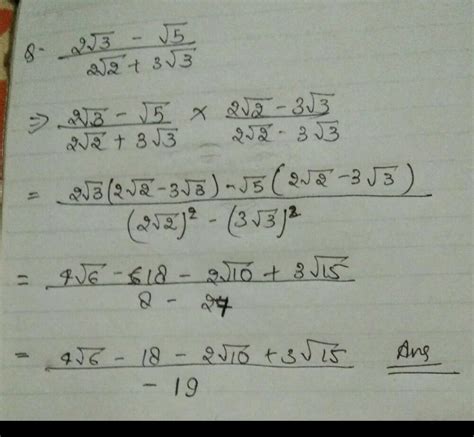 8- (2√3 - √5)/(2√2 + 3√3)
⇒ (2√3 - √5)/(2√2 + 3√3) × (2√2 - 3√3)/(2√2 - 3√3)
= (2√3(2√2 - 3√3) - √5(2√2 - 3√3))/((2√2)² - (3√3)²)
= (4√6 - 18 - 2√10 + 3√15)/(8 - 27)
= (4√6 - 18 - 2√10 + 3√15)/(-19) Ans